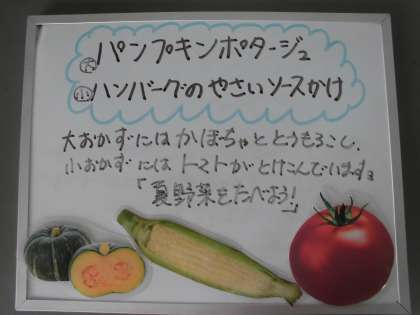 大 パンプキンポタージュ
小 ハンバーグのやさいソースかけ
大おかずにはかぼちゃととうもろこし、
小おかずにはトマトがとけこんでいます。
「夏野菜をたべよう!」